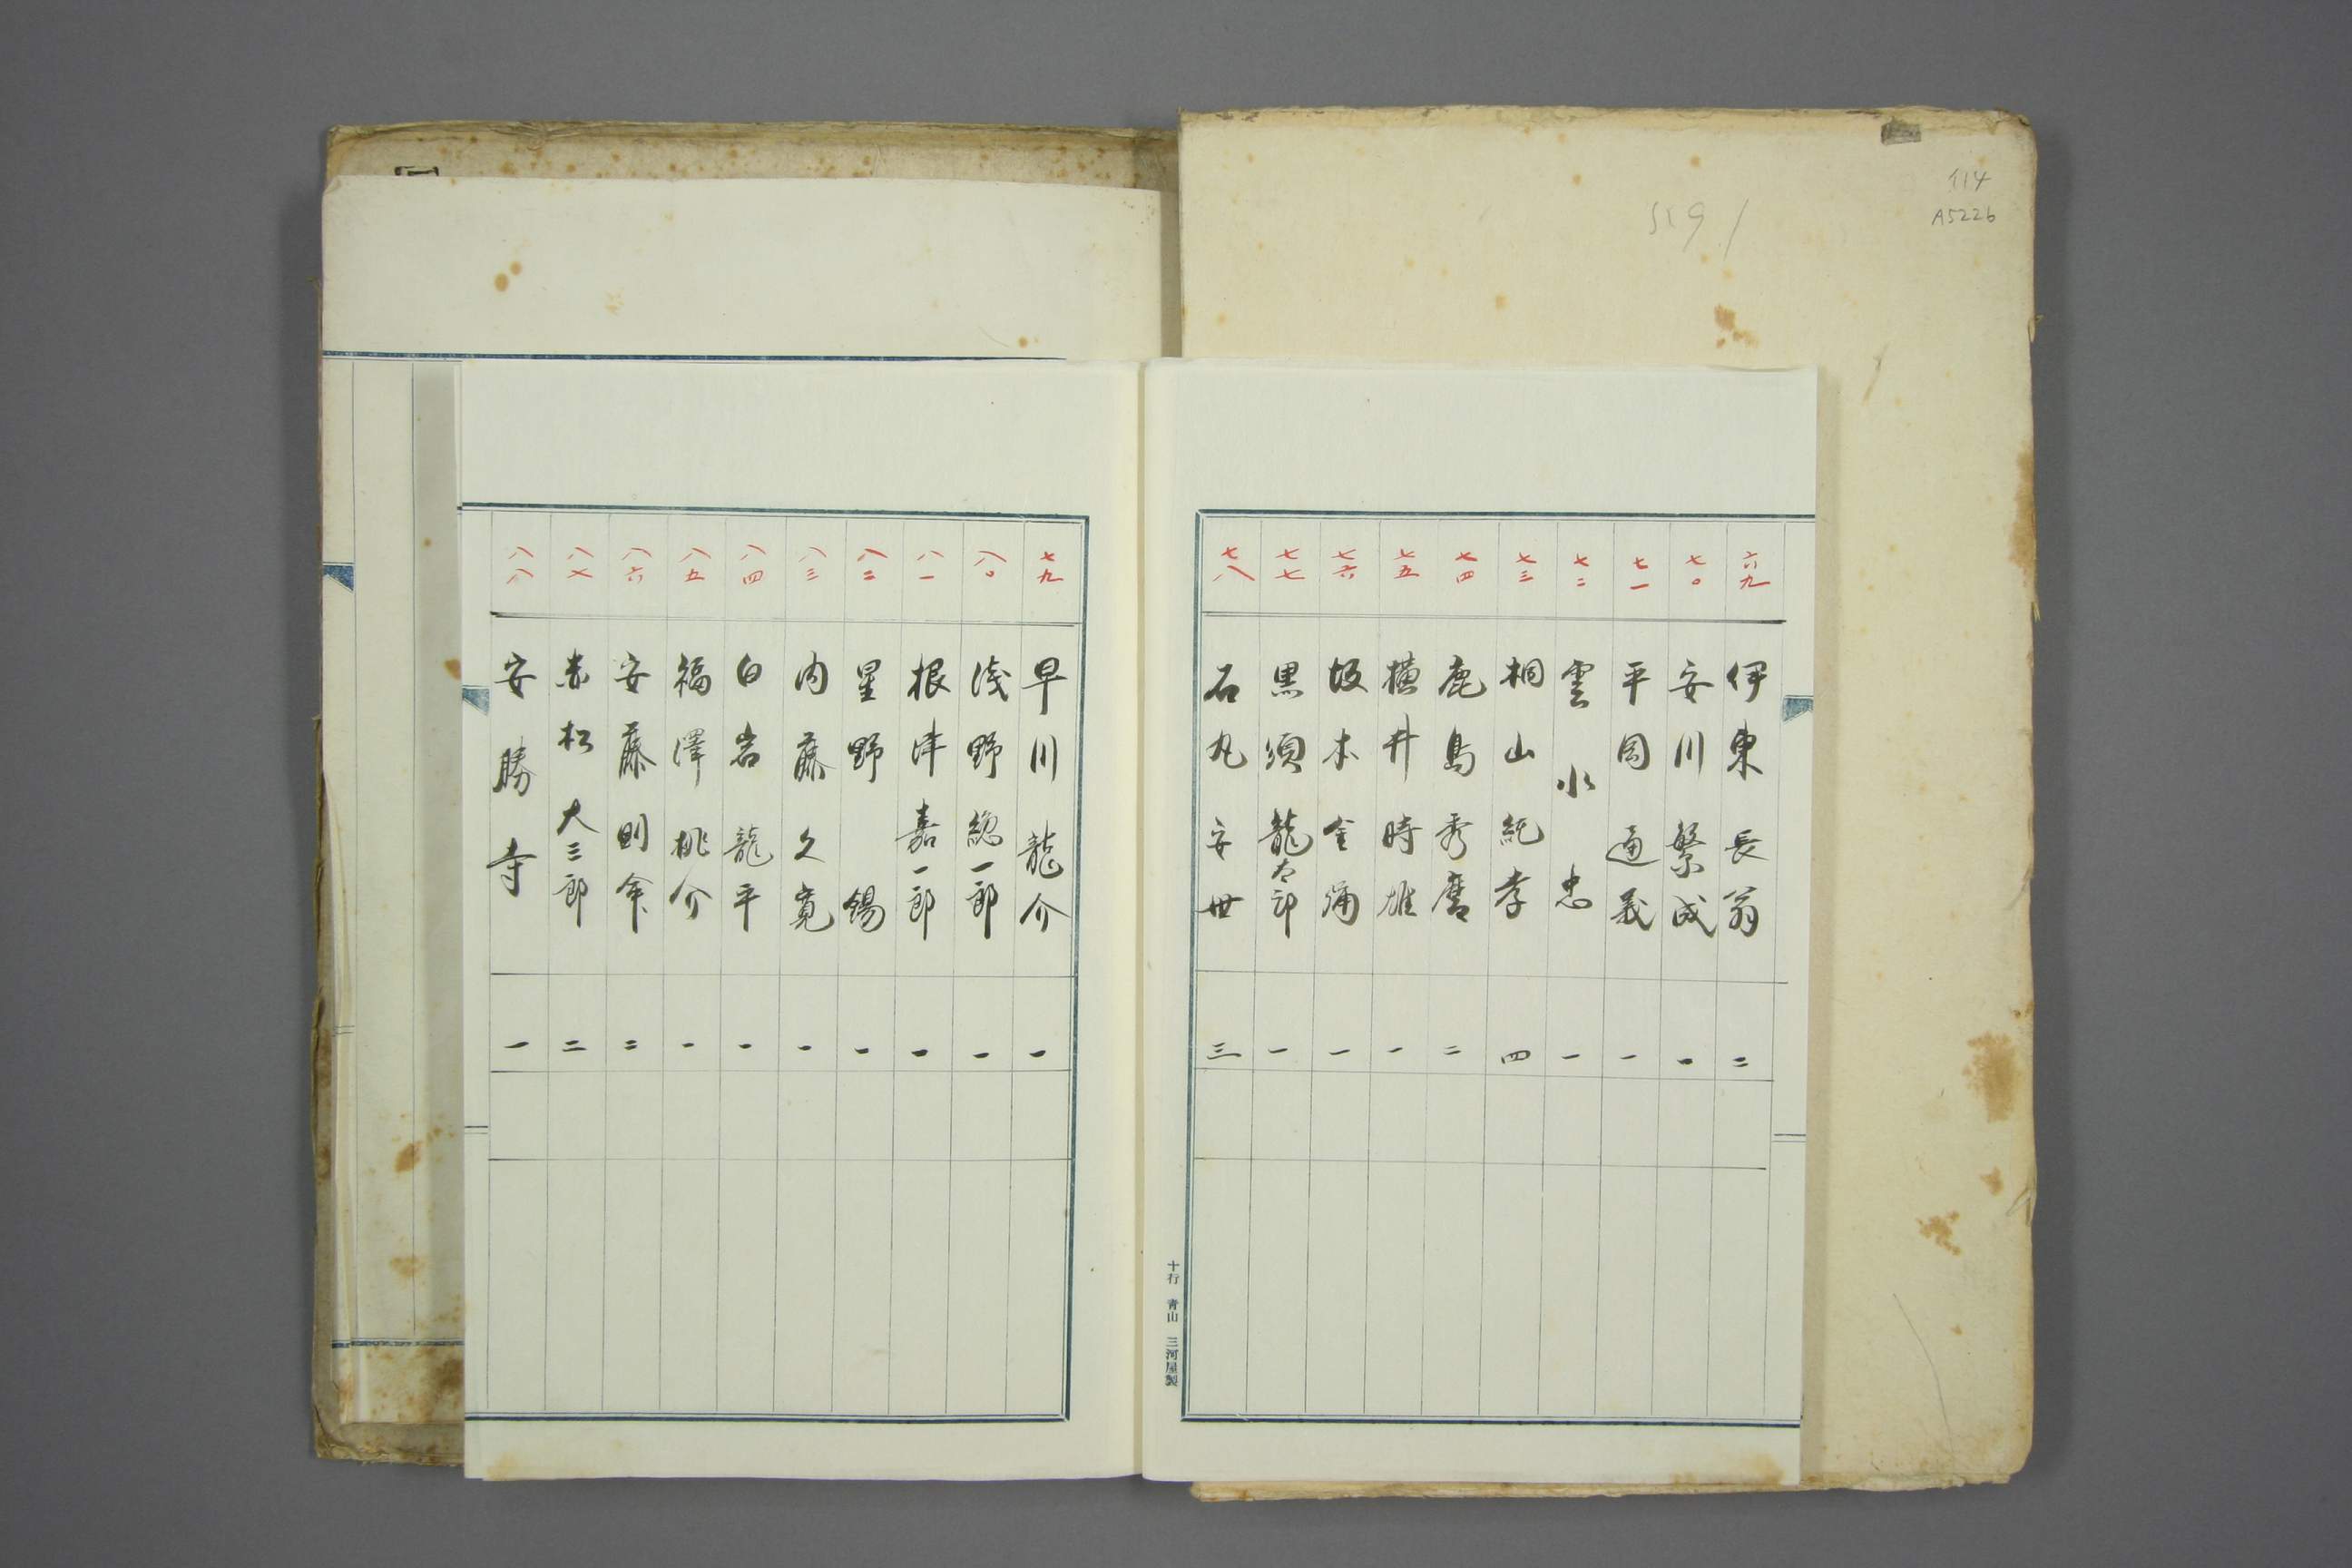 114
A5226
519
六九 伊東長翁 二
七〇 安川繁成 一
七一 平岡通義 一
七二 雲水忠 一
七三 桐山純孝 四
七四 鹿島秀麿 二
七五 横井時雄 一
七六 坂本金弥 一
七七 黒須龍太郎 一
七八 石丸安世 三
十行 青山 三河屋製
七九 早川龍介 一
八〇 浅野総一郎 一
八一 根津嘉一郎 一
八二 星野錫 一
八三 内藤久寛 一
八四 白岩龍平 一
八五 福澤桃介 一
八六 安藤則命 二
八七 赤松大三郎 二
八八 安勝寺 一